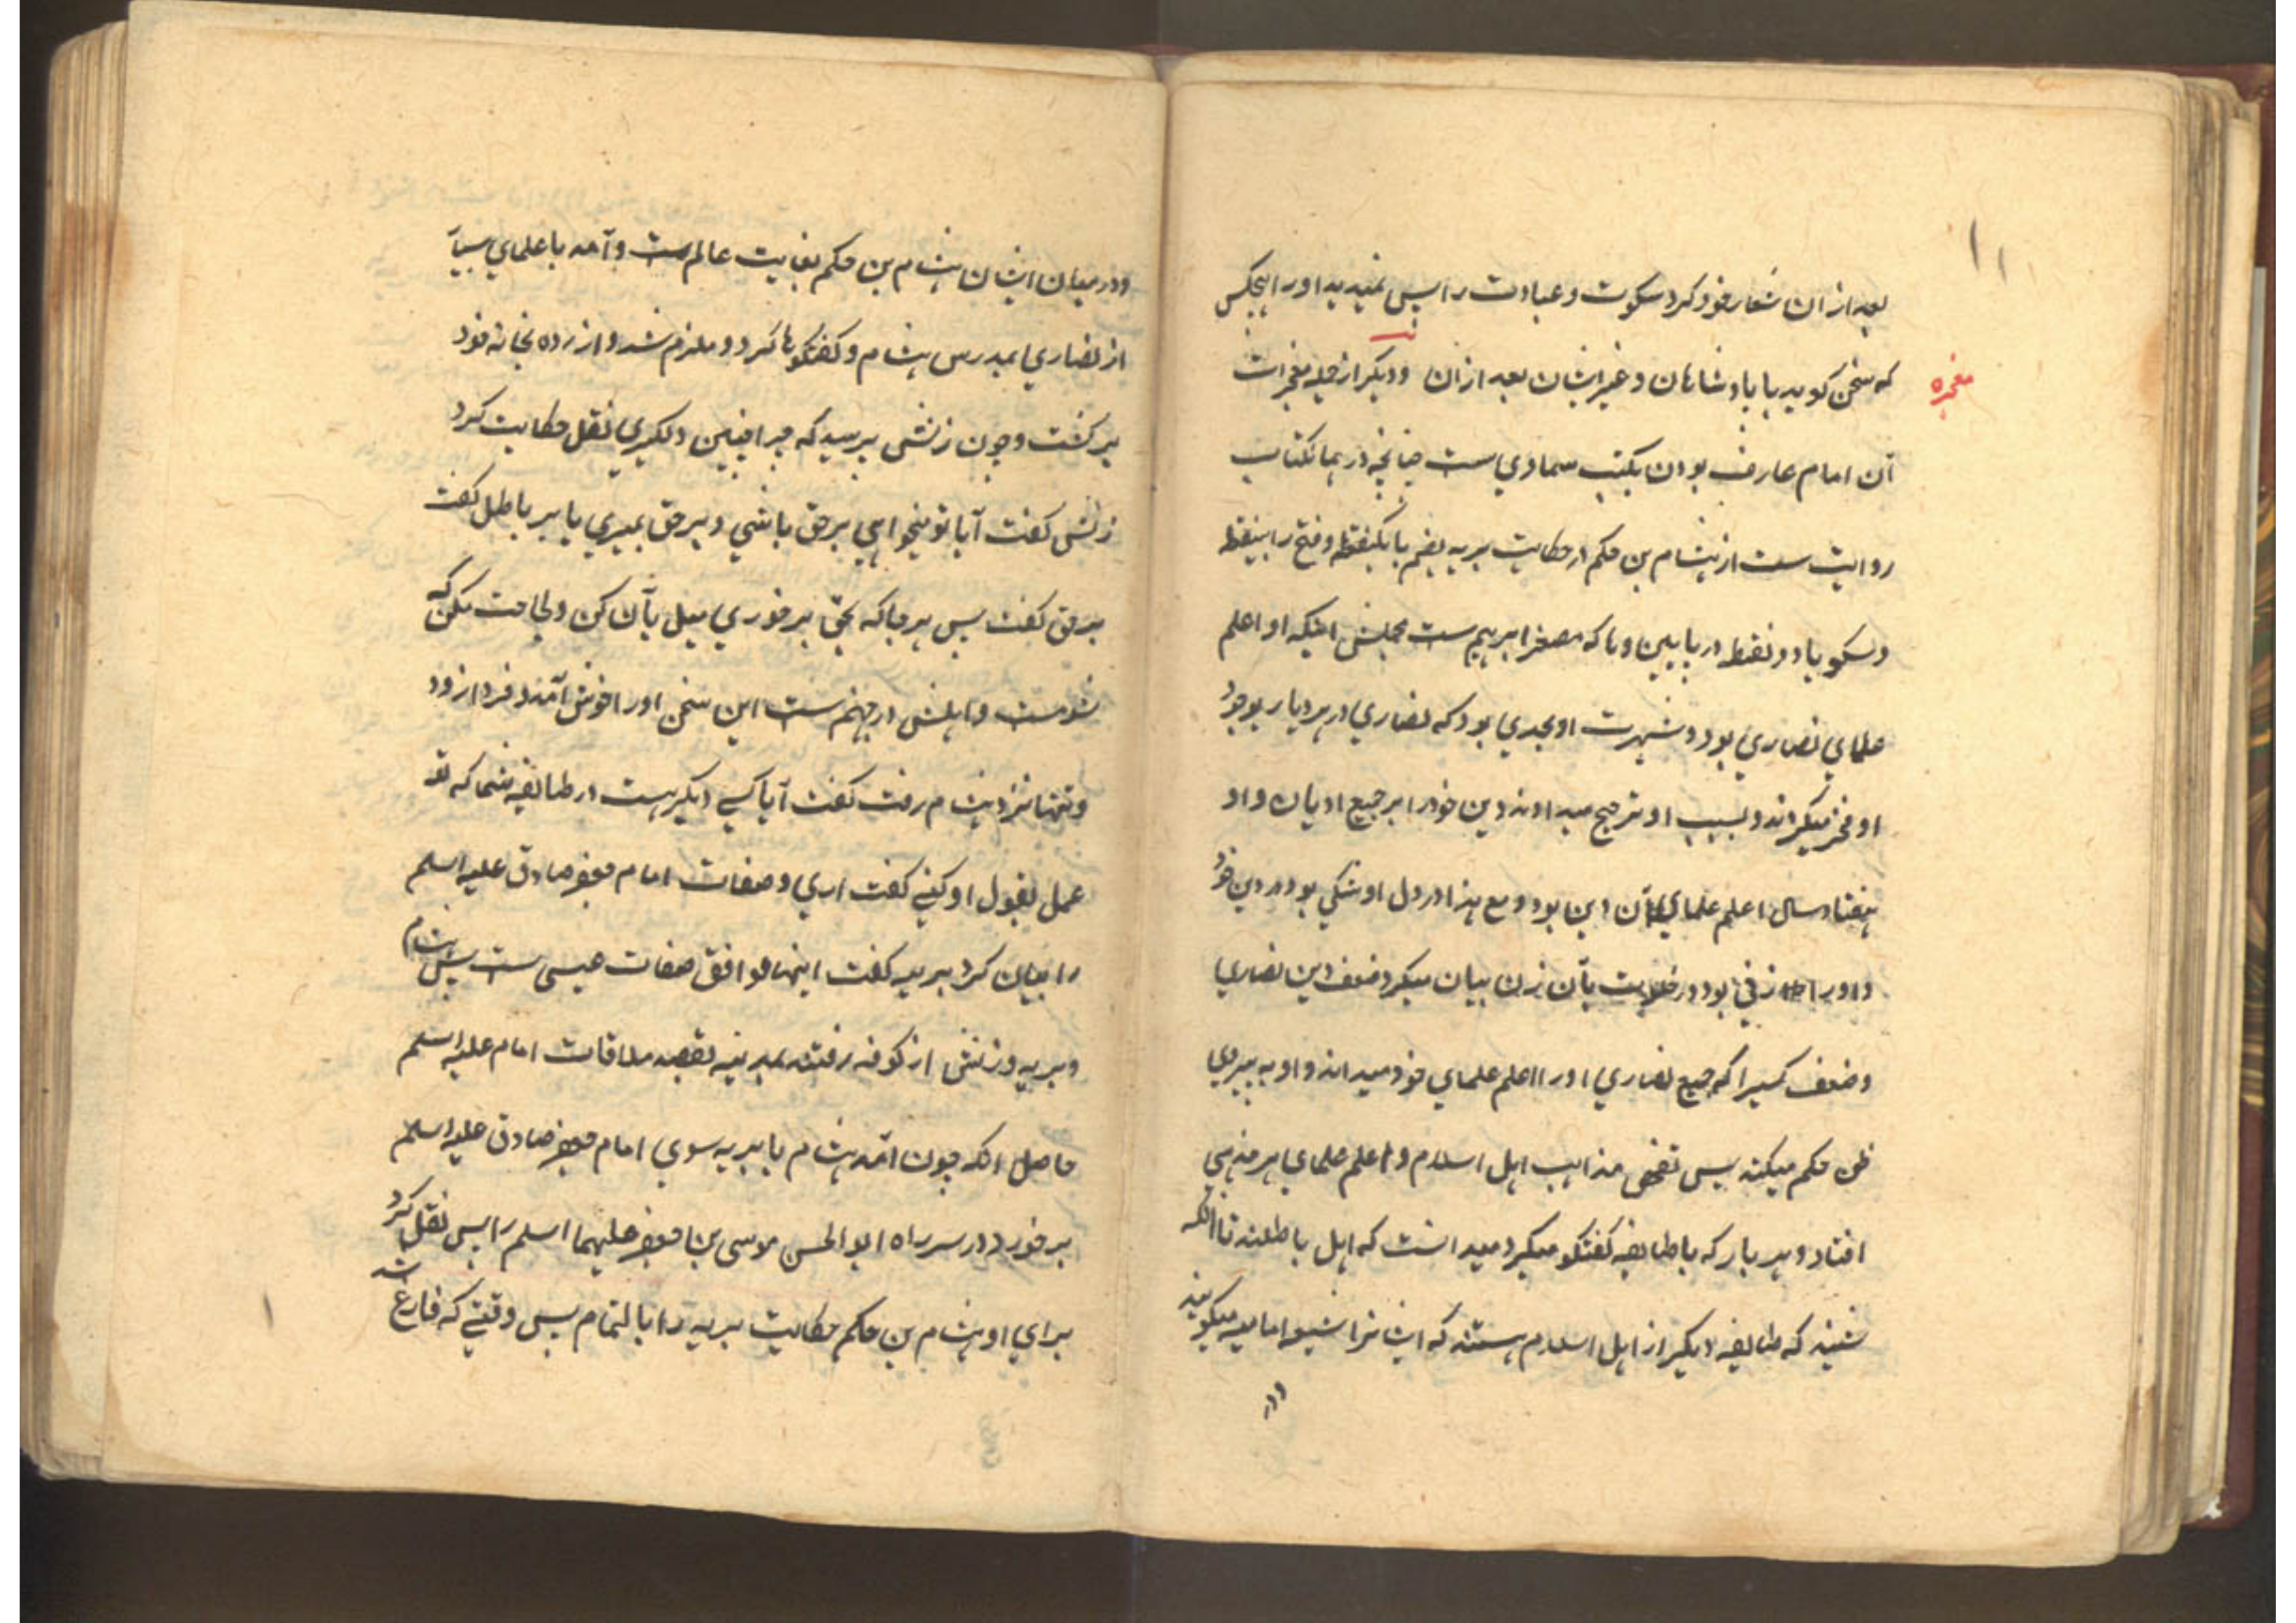 ۱۱
بعد از ان شعار خود کرد سکوت و عبادت را پس نمیدید او را هیچکس
معجزه
که سخن کوید با پادشاهان و غیر ایشان بعد از ان و دیکر از جمله معجزات
آن امام عارف بودن بکتب سماوی ست چنانچه در همانکتاب
روایت ست از هشام بن حکم از حکایت بریه بضم با یکنقطه و فتح را بینقطه
و سکون یا دو نقطه در پایین و ها که مصغر ابرهیم ست مجملش اینکه او اعلم
علمای نصاری بود و شهرت او بحدی بود که نصاری در هر دیار بوجود
او فخر میکردند و بسبب او ترجیح میدادند دین خود را بر جمیع ادیان و او
هفتاد سال اعلم علمای آن دین بود و مع هذا در دل او شکی بود در دین خود
و او را زنی بود در خلوت بآن زن بیان میکرد ضعف دین نصاری
و ضعف کسیرا که جمیع نصاری او را اعلم علمای خود میدانند و او به پیروی
ظن حکم میکند پس تفحص مذاهب اهل اسلام و اعلم علمای هر مذهبی
افتاد و هر بار که با طایفه کفتکو میکرد میدانست که اهل باطلند تا آنکه
شنید که طایفه دیکر از اهل اسلام هستند که ایشانرا شیعه امامیه میکویند
و در
و در میان ایشان هشام بن حکم بغایت عالم ست و آمد با علمای بسیار
از نصاری بمدرس هشام و کفتکوها کرد و ملزم شد و ازرده بخانه خود
برکشت و چون زنش پرسید که چرا چنین دلکیری نقل حکایت کرد
زنش کفت آیا تو میخواهی بر حق باشی و بر حق بمیری یا بر باطل کفت
بر حق کفت پس هر جا که بحق برخوری میل بآن کن و لجاجت مکن که
شومست و اهلش در جهنم ست این سخن او را خوش آمد و فردا زود
و تنها نزد هشام رفت کفت آیا کسی دیکر هست در طایفه شما که تو
عمل بقول او کنی کفت اری و صفات امام جعفر صادق علیه السلم
را بیان کرد بریه کفت اینها موافق صفات عیسی ست پس هشام
و بریه و زنش از کوفه رفتند بمدینه بقصد ملاقات امام علیه السلم
حاصل انکه چون آمد هشام با بریه سوی امام جعفر صادق علیه السلم
برخورد در سر راه ابو الحسن موسی بن جعفر علیهما السلم را پس نقل کرد
برای او هشام بن حکم حکایت بریه را بالتمام پس وقتی که فارغ شد